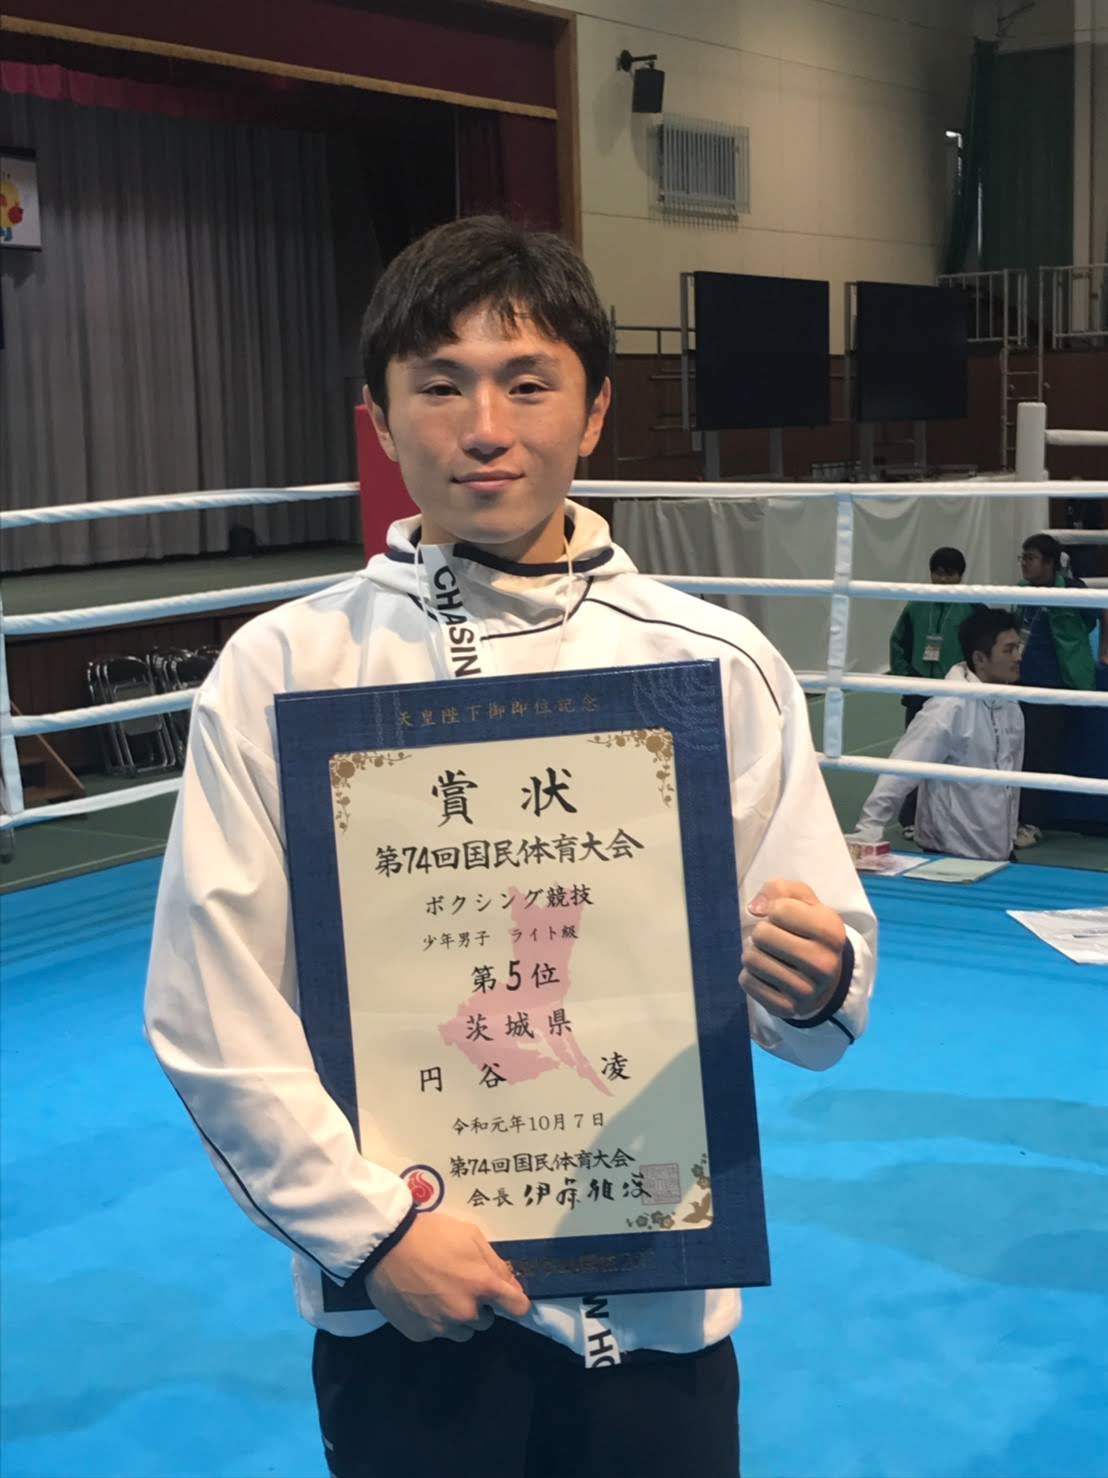 CHASIN
天皇陛下御即位記念
賞状
第74回国民体育大会
ボクシング競技
少年男子 ライト級
第5位
茨城県
円谷 凌
令和元年10月7日
第74回国民体育大会
会長 伊藤雅俊
N HO